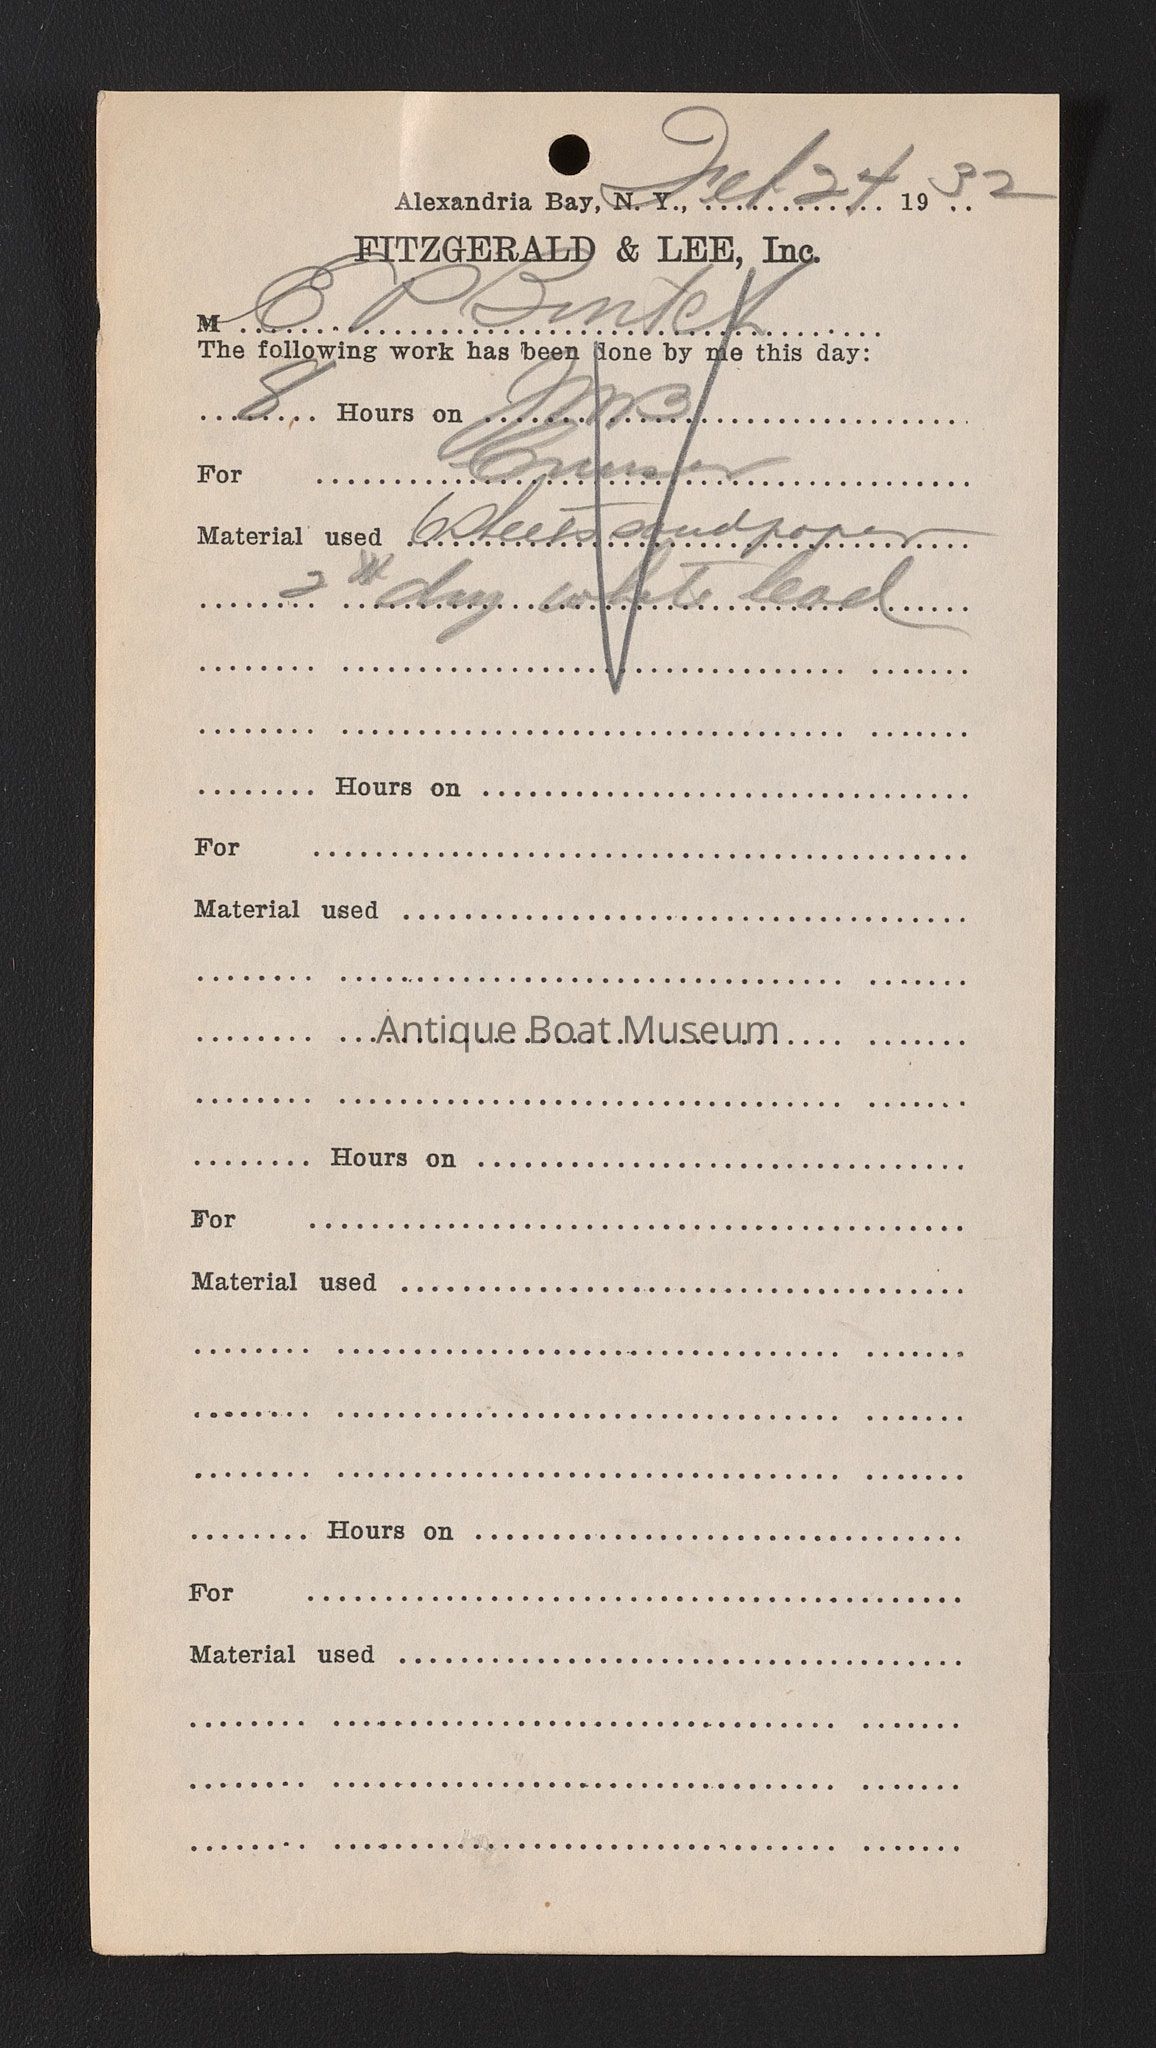 Alexandria Bay, N. Y., Feb 24 1932
FITZGERALD & LEE, Inc.
M E P
The following work has been done by me this day:
8 Hours on
For Cruiser
Material used 6 sheets sandpaper
2 # dry white lead
Hours on
For
Material used
Antique Boat Museum
Hours on
For
Material used
Hours on
For
Material used